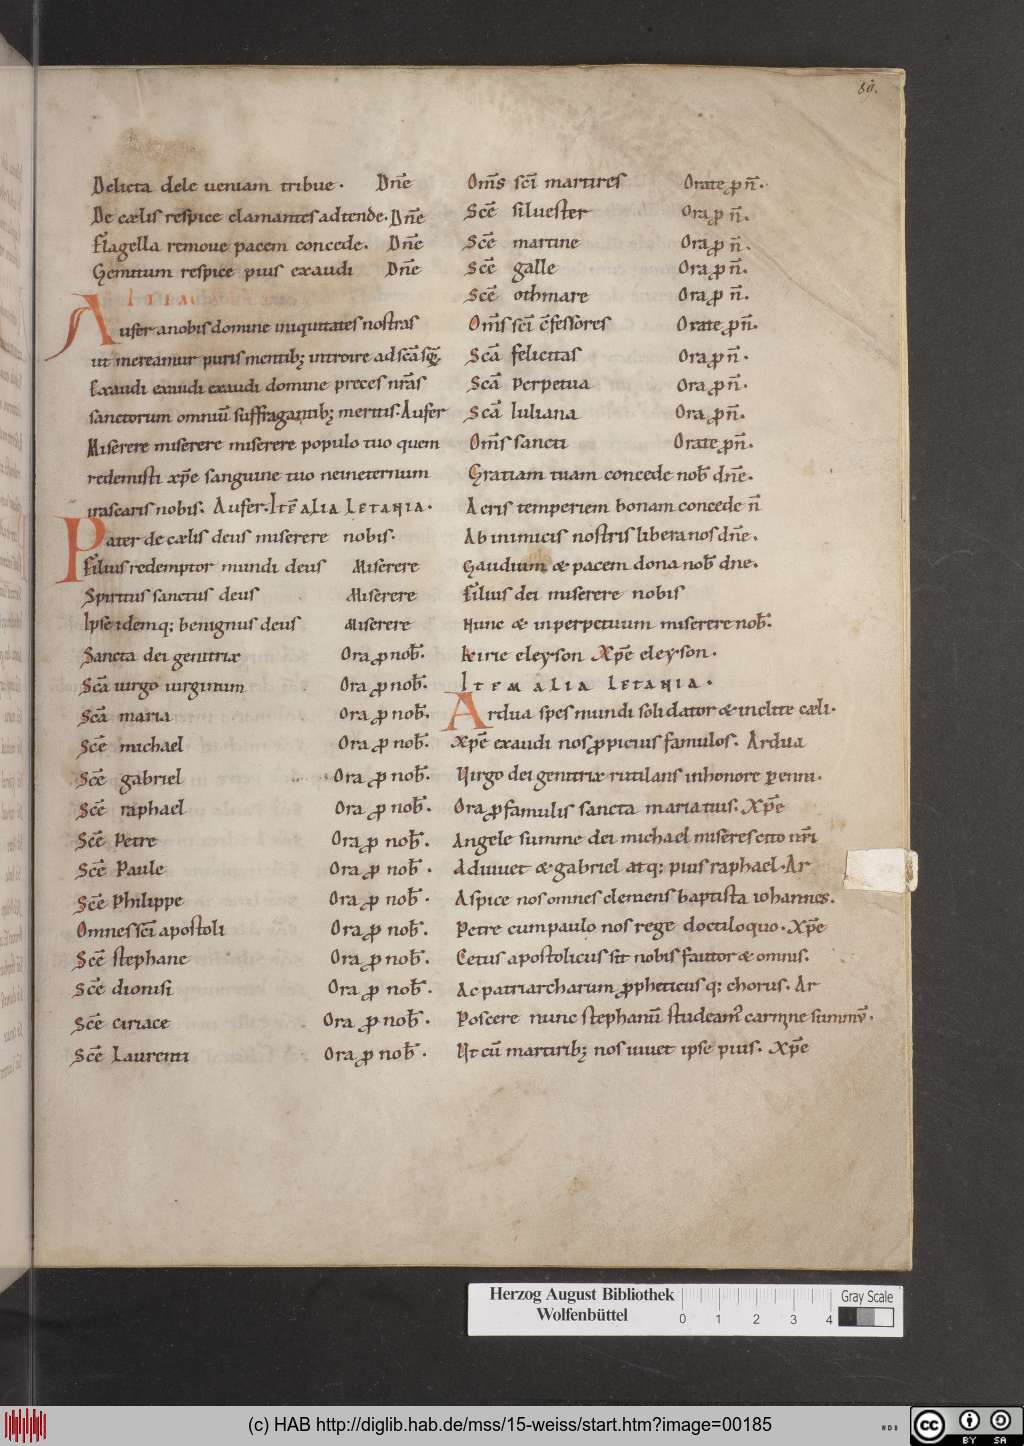 89.
Delicta dele ueniam tribue. Dn̄e
De cælis respice clamantes adtende. Dn̄e
Flagella remoue pacem concede. Dn̄e
Gemitum respice pius exaudi Dn̄e
Aufer a nobis domine iniquitates nostras
ut mereamur puris mentib; introire ad sc̄a sc̄
Exaudi exaudi exaudi domine preces nr̄as
sanctorum omniū suffragantib; meritis. Aufer
Miserere miserere miserere populo tuo quem
redemisti xp̄e sanguine tuo ne ineternum
irascaris nobis. Aufer. Itē alia letania.
Pater de cælis deus miserere nobis.
Filius redemptor mundi deus Miserere
Spiritus sanctus deus Miserere
Ipse idemq; benignus deus Miserere
Sancta dei genitrix Ora ꝓ nob̄.
Sc̄a uirgo uirginum Ora ꝓ nob̄.
Sc̄a maria Ora ꝓ nob̄.
Sc̄e michael Ora ꝓ nob̄.
Sc̄e gabriel Ora ꝓ nob̄.
Sc̄e raphael Ora ꝓ nob̄.
Sc̄e Petre Ora ꝓ nob̄.
Sc̄e Paule Ora ꝓ nob̄.
Sc̄e Philippe Ora ꝓ nob̄.
Omnes sc̄i apostoli Ora ꝓ nob̄.
Sc̄e stephane Ora ꝓ nob̄.
Sc̄e dionisi Ora ꝓ nob̄.
Sc̄e ciriace Ora ꝓ nob̄.
Sc̄e Laurenti Ora ꝓ nob̄.
Om̄s sc̄i martires Orate ꝓ n̄.
Sc̄e siluester Ora ꝓ n̄.
Sc̄e martine Ora ꝓ n̄.
Sc̄e galle Ora ꝓ n̄.
Sc̄e othmare Ora ꝓ n̄.
Om̄s sc̄i c̄fessores Orate ꝓ n̄.
Sc̄a felicitas Ora ꝓ n̄.
Sc̄a Perpetua Ora ꝓ n̄.
Sc̄a Iuliana Ora ꝓ n̄.
Om̄s sancti Orate ꝓ n̄.
Gratiam tuam concede nob̄ dn̄e.
Aeris temperiem bonam concede n̄
Ab inimicis nostris libera nos dn̄e.
Gaudium & pacem dona nob̄ dne.
Filius dei miserere nobis
Nunc & inperpetuum miserere nob̄.
Keirie eleyson Xp̄e eleyson.
Item alia letania.
Ardua spes mundi solidator & inclite cæli.
Xp̄e exaudi nos ꝓpicius famulos. Ardua
Uirgo dei genitrix rutilans in honore ꝑenni.
Ora ꝓ famulis sancta maria tuis. Xp̄e
Angele summe dei michael miseresCito nr̄i
Adiuuet & gabriel atq; pius raphael. Ar
Aspice nos omnes clemens baptista iohannes.
Petre cum paulo nos rege doctiloquo. Xp̄e
Cetus apostolicus sit nobis fautor & omnis.
Ac patriarcharum ꝓpheticusq; chorus. Ar
Poscere nunc stephanū studeam' carmine summū.
Ut cū martirib; nos iuuet ipse pius. Xp̄e
Herzog August Bibliothek
Wolfenbüttel
0 1 2 3 4
Gray Scale
(c) HAB http://diglib.hab.de/mss/15-weiss/start.htm?image=00185
cc BY SA